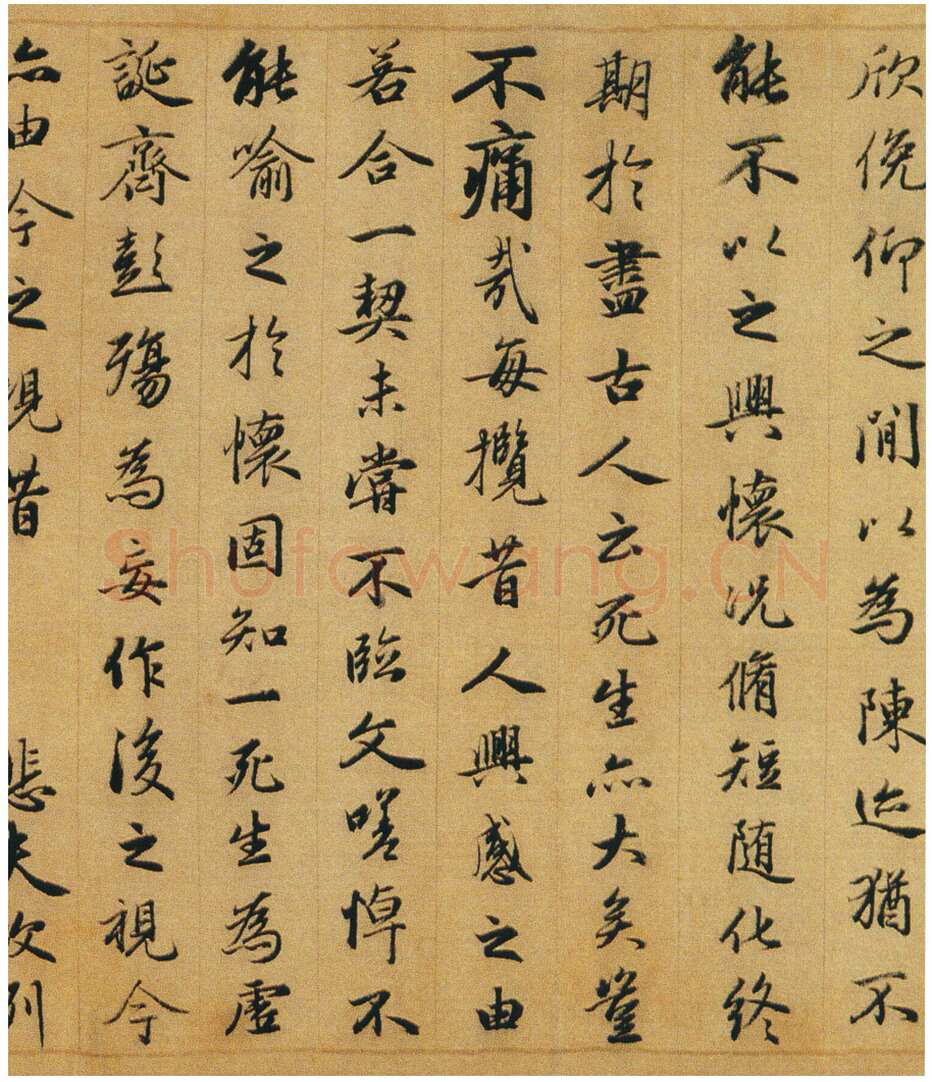 欣俛仰之閒以為陳迹猶不
能不以之興懷況脩短随化終
期於盡古人云死生亦大矣豈
不痛哉每攬昔人興感之由
若合一契未嘗不臨文嗟悼不
能喻之於懷固知一死生為虛
誕齊彭殤為妄作後之視今
亦由今之視昔 悲夫故列
Shufawang.CN